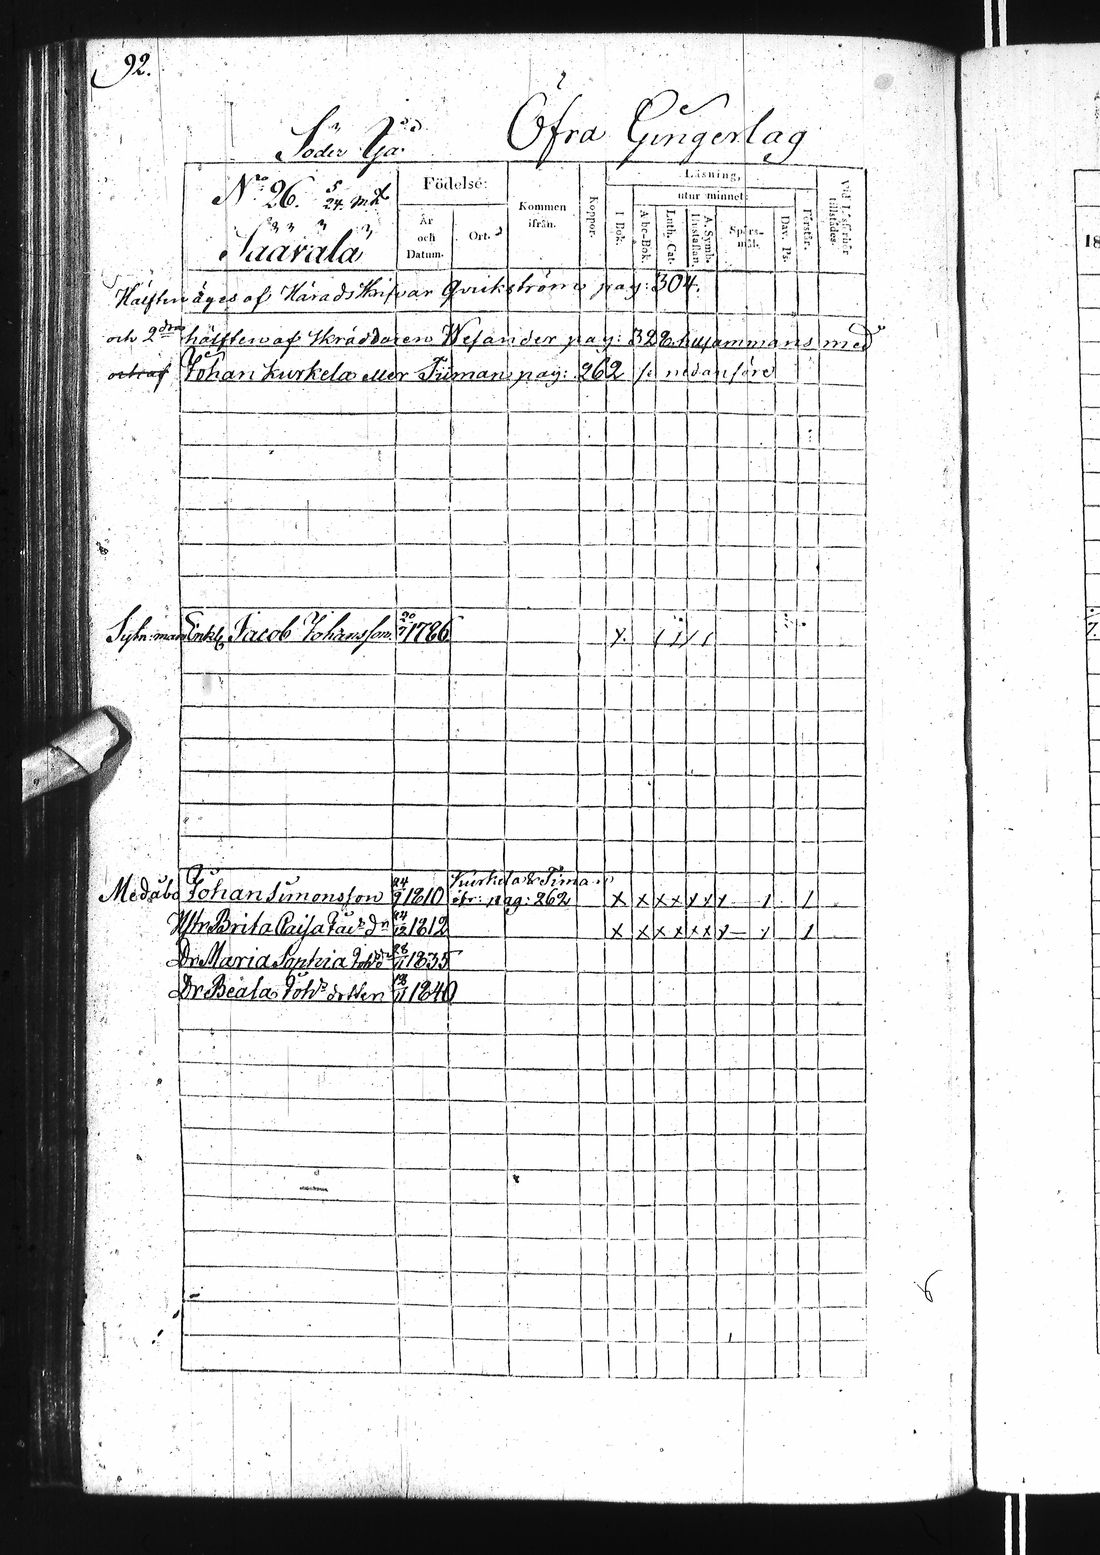 92.
Söder Ga: Öfra Gingerlag
No: 26. 5/24. mtl
Saavala
Födelse:
År och Datum.
Ort.
Kommen ifrån.
Koppor.
Läsning,
utur minnet:
I Bok.
Abc-Bok.
Luth. Cat.
A. Symb. Hustaflan.
Spörs-mål.
Dav. Ps.
Förstår.
Vid Läsförhör tillstädes.
18
Hälften äges af Härads Skrifvar Qvickström pag: 304.
och 2dra hälften af Skräddaren Wefander pag: 328 tillsammans med
och af Johan Kurkela eller Tiiman pag: 262 se nedanföre
Sytn:man Enkl. Jacob Johansson 20/7 1786
Medåbo Johan Simonsson 24/9 1810 Kurkela & Tiiman
pag: 262
Hstr Brita Caisa 24/12 1812
Dr Maria Sophia 28/11 1835
Dr Beata 18/11 1840